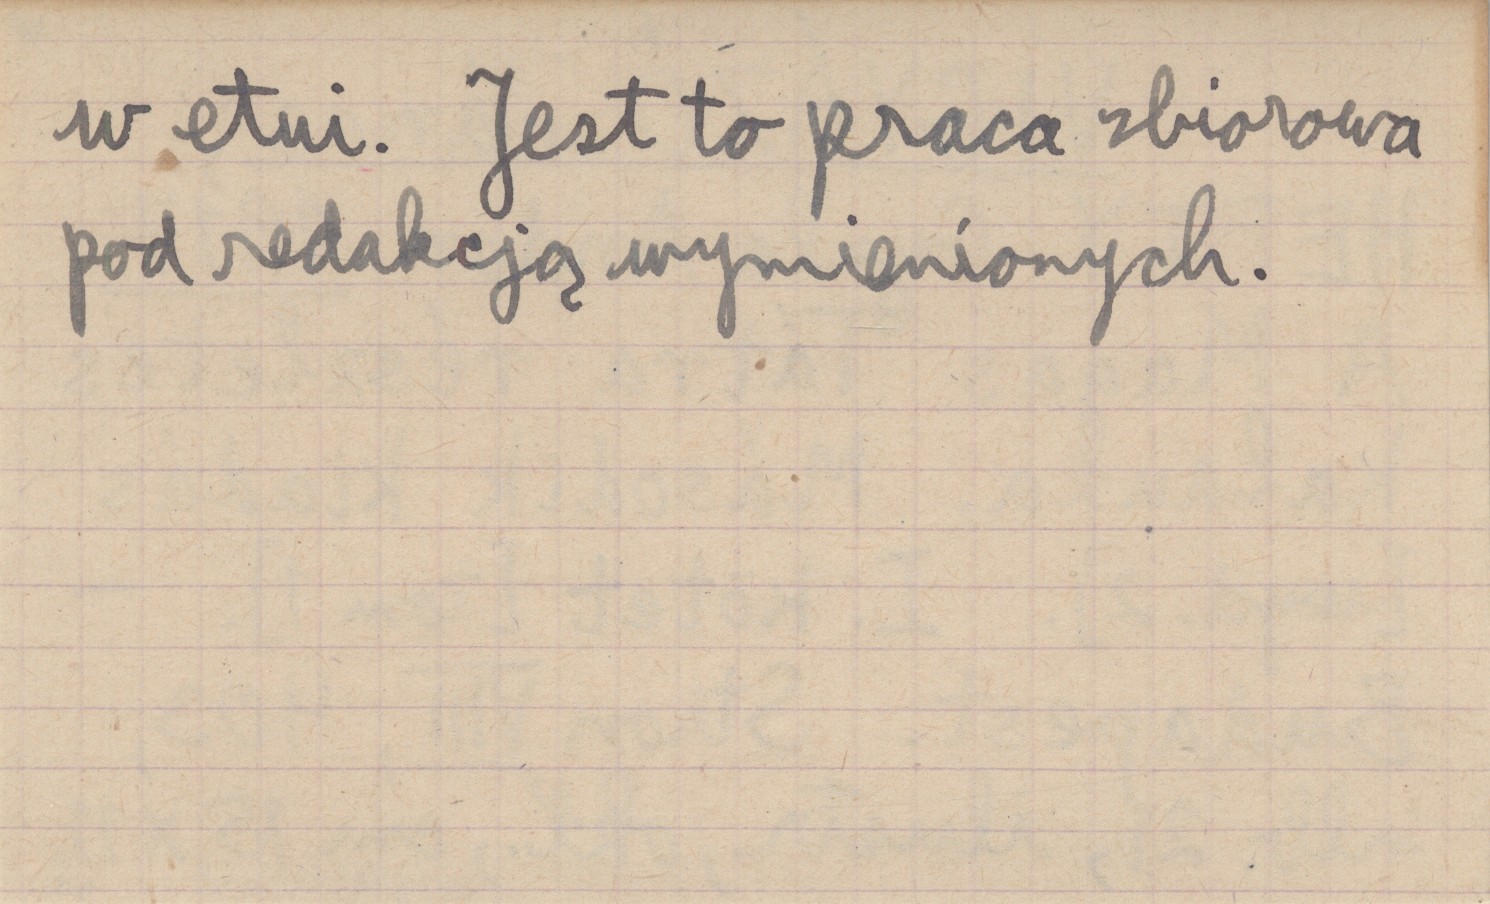 w etui. Jest to praca zbiorowa
pod redakcją wymienionych.